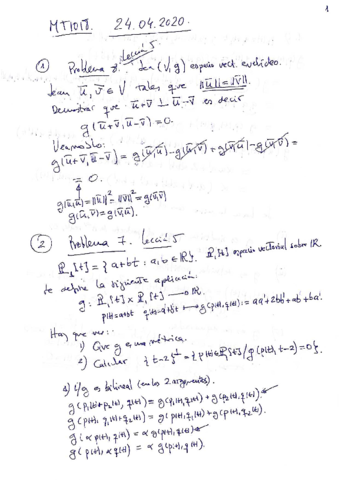 1
MT1018. 24.04.2020.
① Problema 8. Lección 5
Sea (V, g) espacio vect. euclídeo.
Sean u̅, v̅ ∈ V tales que ‖u̅‖ = ‖v̅‖.
Demostrar que u̅+v̅ ⊥ u̅-v̅ es decir
g(u̅+v̅, u̅-v̅) = 0.
Veamoslo:
g(u̅+v̅, u̅-v̅) = g(u̅,u̅) - g(u̅,v̅) + g(v̅,u̅) - g(v̅,v̅) =
= 0.
g(u̅,u̅) = ‖u̅‖² = ‖v̅‖² = g(v̅,v̅)
g(u̅,v̅) = g(v̅,u̅).
② Problema 7. Lección 5
P₁[t] = { a+bt : a,b ∈ ℝ }. P₁[t] espacio vectorial sobre ℝ.
Se define la siguiente aplicación:
g: P₁[t] × P₁[t] → ℝ
p(t)=a+bt q(t)=a'+b't → g(p(t),q(t)) := aa'+2bb'+ab'+ba'.
Hay que ver:
1) Que g es una métrica.
2) Calcular {t-2}⊥ = { p(t) ∈ P₁[t] / g(p(t), t-2) = 0 }.
1) ¿g es bilineal (en los 2 argumentos).
g(p₁(t)+p₂(t), q(t)) = g(p₁(t), q(t)) + g(p₂(t), q(t)).
g(p(t), q₁(t)+q₂(t)) = g(p(t), q₁(t)) + g(p(t), q₂(t)).
g(α p(t), q(t)) = α g(p(t), q(t))
g(p(t), α q(t)) = α g(p(t), q(t)).